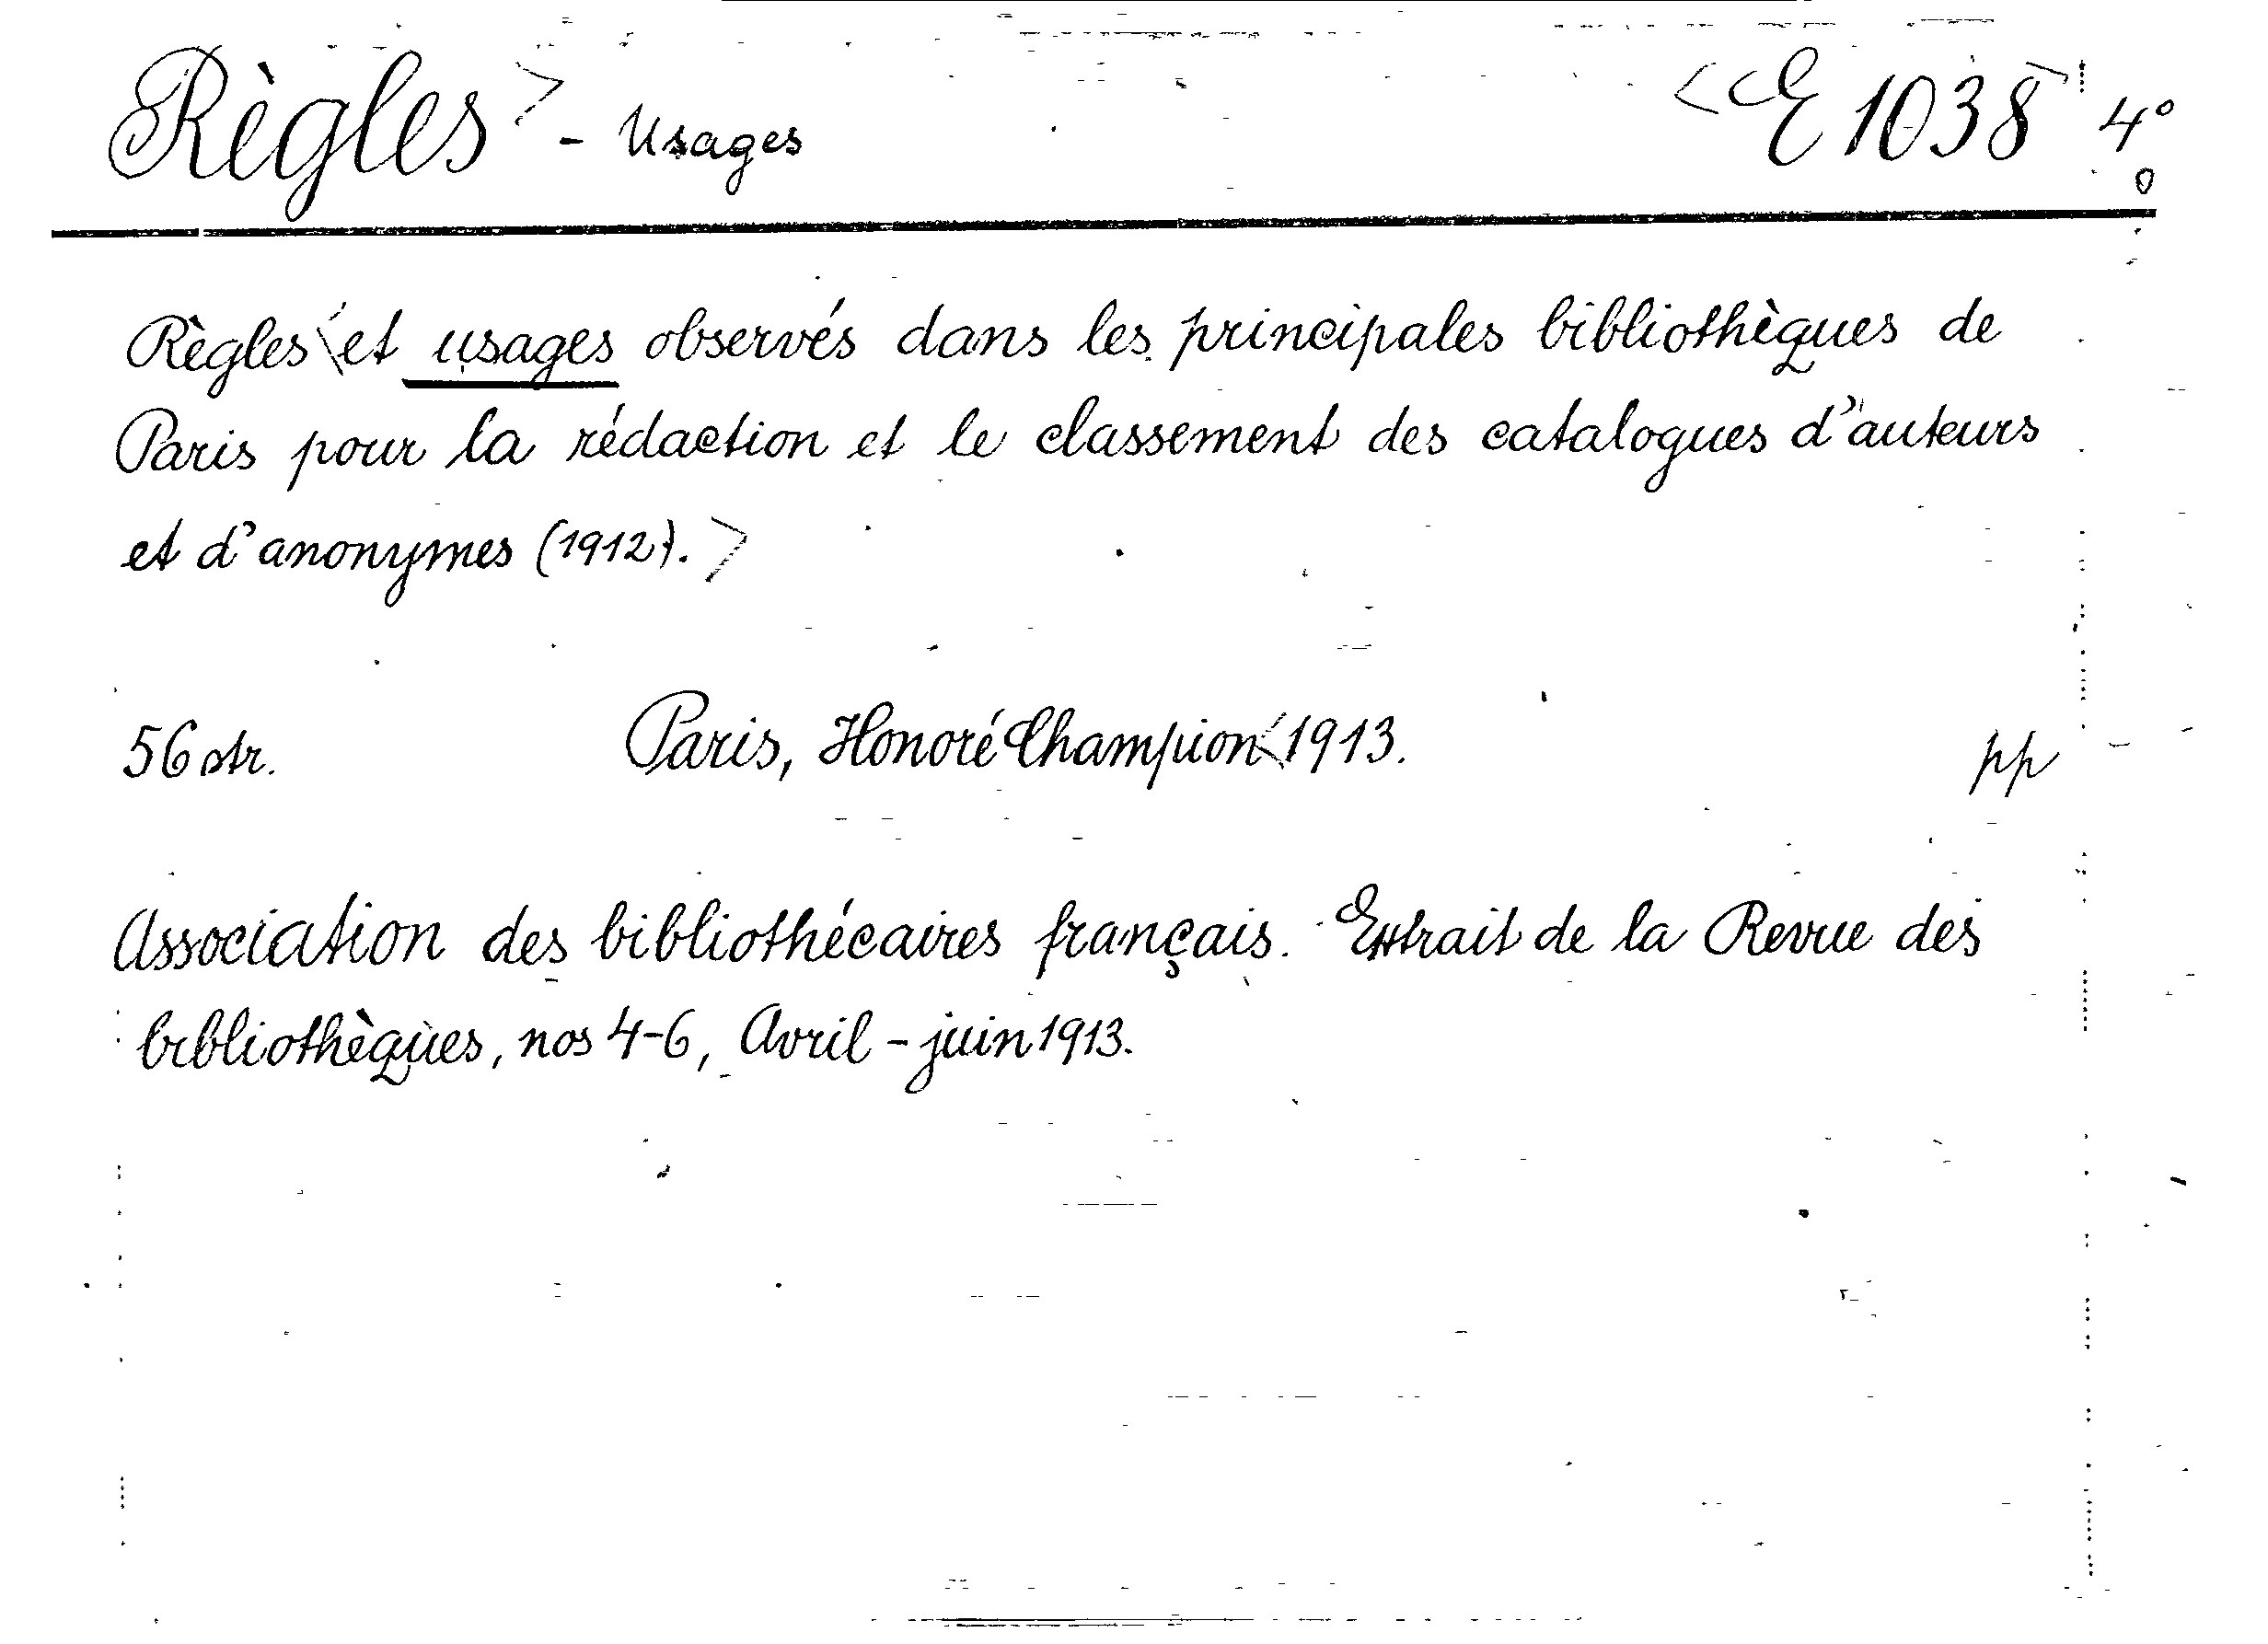 Règles > - Usages < E 1038 > 4°
o
Règles < et usages observés dans les principales bibliothèques de
Paris pour la rédaction et le classement des catalogues d'auteurs
et d'anonymes (1912). >
56 str. Paris, Honoré Champion < 1913. pp
Association des bibliothécaires français. Extrait de la Revue des
bibliothèques, nos 4-6, Avril - juin 1913.